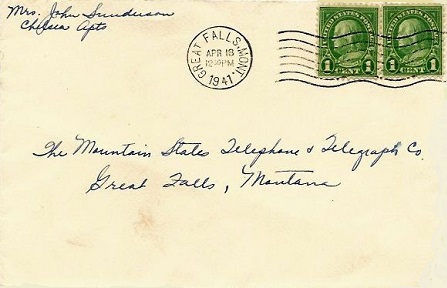 Mrs. John Sunderson
Chelsea Apts
GREAT FALLS, MONT.
APR 18
12 PM
1941
UNITED STATES POSTAGE
1 CENT 1
UNITED STATES POSTAGE
1 CENT 1
The Mountain States Telephone & Telegraph Co
Great Falls, Montana